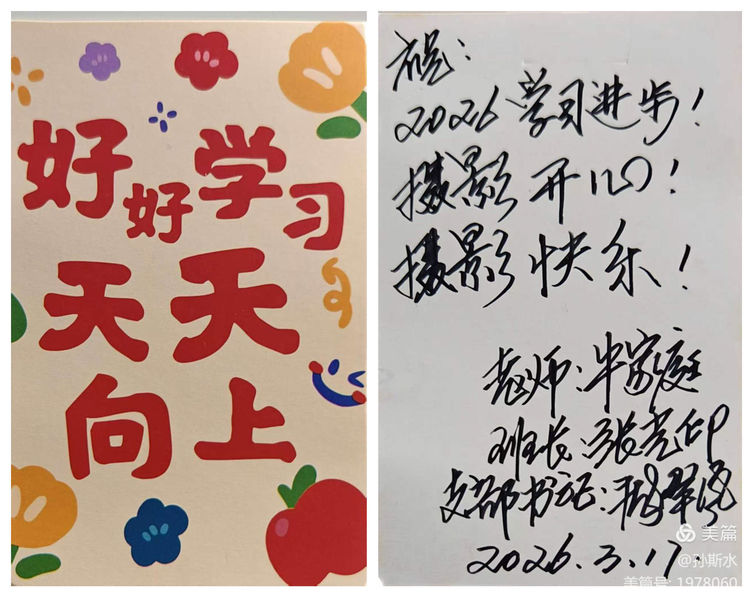 好好学习
天天
向上
祝:
2026学习进步!
摄影开心!
摄影快乐!
老师:牛家庭
班长:张亮印
支部书记:
2026.3.17.
美篇
@孙斯水
美篇号:1978060